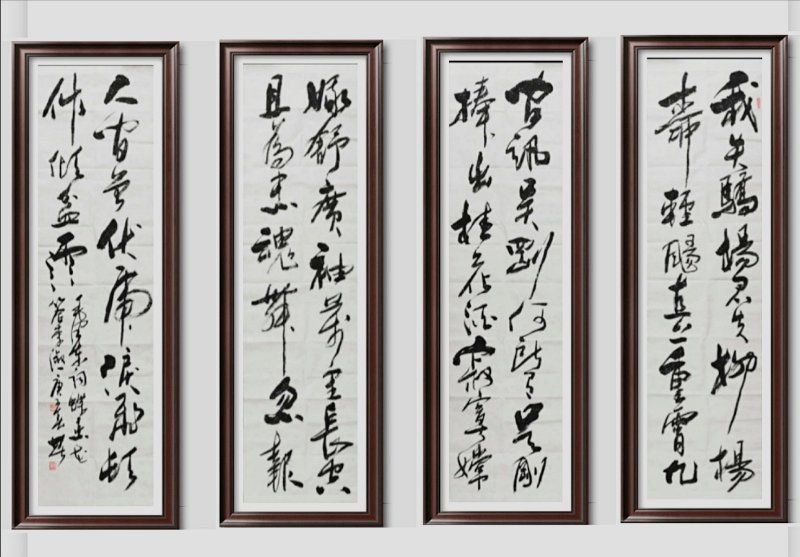 我失驕楊君失柳楊
柳輕颺直上重霄九
問訊吳剛何所有吳剛
捧出桂花酒寂寞嫦
娥舒廣袖萬里長空
且為忠魂舞忽報
人間曾伏虎淚飛頓
作傾盆雨
毛澤東詞蝶戀花
答李淑一庚